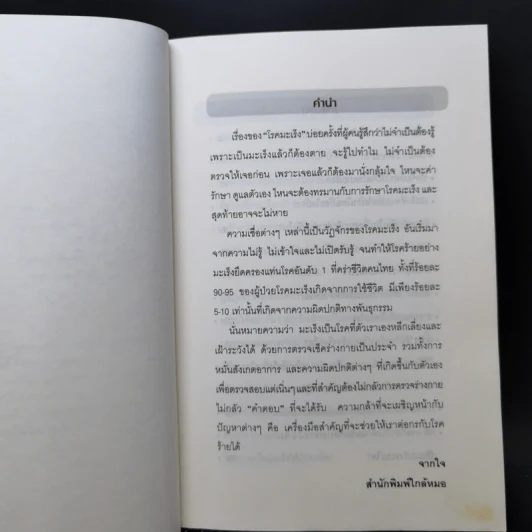 คำนำ
เรื่องของ "โรคมะเร็ง" บ่อยครั้งที่ผู้คนรู้สึกว่าไม่จำเป็นต้องรู้
เพราะเป็นมะเร็งแล้วก็ต้องตาย จะรู้ไปทำไม ไม่จำเป็นต้อง
ตรวจให้เจอก่อน เพราะเจอแล้วก็ต้องมานั่งกลุ้มใจ ไหนจะค่า
รักษา ดูแลตัวเอง ไหนจะต้องทรมานกับการรักษาโรคมะเร็ง และ
สุดท้ายอาจจะไม่หาย
ความเชื่อต่างๆ เหล่านี้เป็นวัฏจักรของโรคมะเร็ง อันเริ่มมา
จากความไม่รู้ ไม่เข้าใจและไม่เปิดรับรู้ จนทำให้โรคร้ายอย่าง
มะเร็งยึดครองแท่นโรคอันดับ 1 ที่คร่าชีวิตคนไทย ทั้งที่ร้อยละ
90-95 ของผู้ป่วยโรคมะเร็งเกิดจากการใช้ชีวิต มีเพียงร้อยละ
5-10 เท่านั้นที่เกิดจากความผิดปกติทางพันธุกรรม
นั่นหมายความว่า มะเร็งเป็นโรคที่ตัวเราเองหลีกเลี่ยงและ
เฝ้าระวังได้ ด้วยการตรวจเช็คร่างกายเป็นประจำ รวมทั้งการ
หมั่นสังเกตอาการ และความผิดปกติต่างๆ ที่เกิดขึ้นกับตัวเอง
เพื่อตรวจสอบแต่เนิ่นๆ และที่สำคัญต้องไม่กลัวการตรวจร่างกาย
ไม่กลัว "คำตอบ" ที่จะได้รับ ความกล้าที่จะเผชิญหน้ากับ
ปัญหาต่างๆ คือ เครื่องมือสำคัญที่จะช่วยให้เราต่อกรกับโรค
ร้ายได้
จากใจ
สำนักพิมพ์ใกล้หมอ